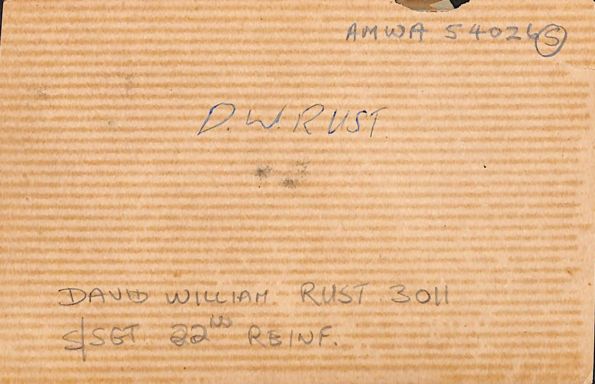 AMWA 54026 S
D.W. RUST
DAVID WILLIAM. RUST. 3011
S/SGT 22ND REINF.